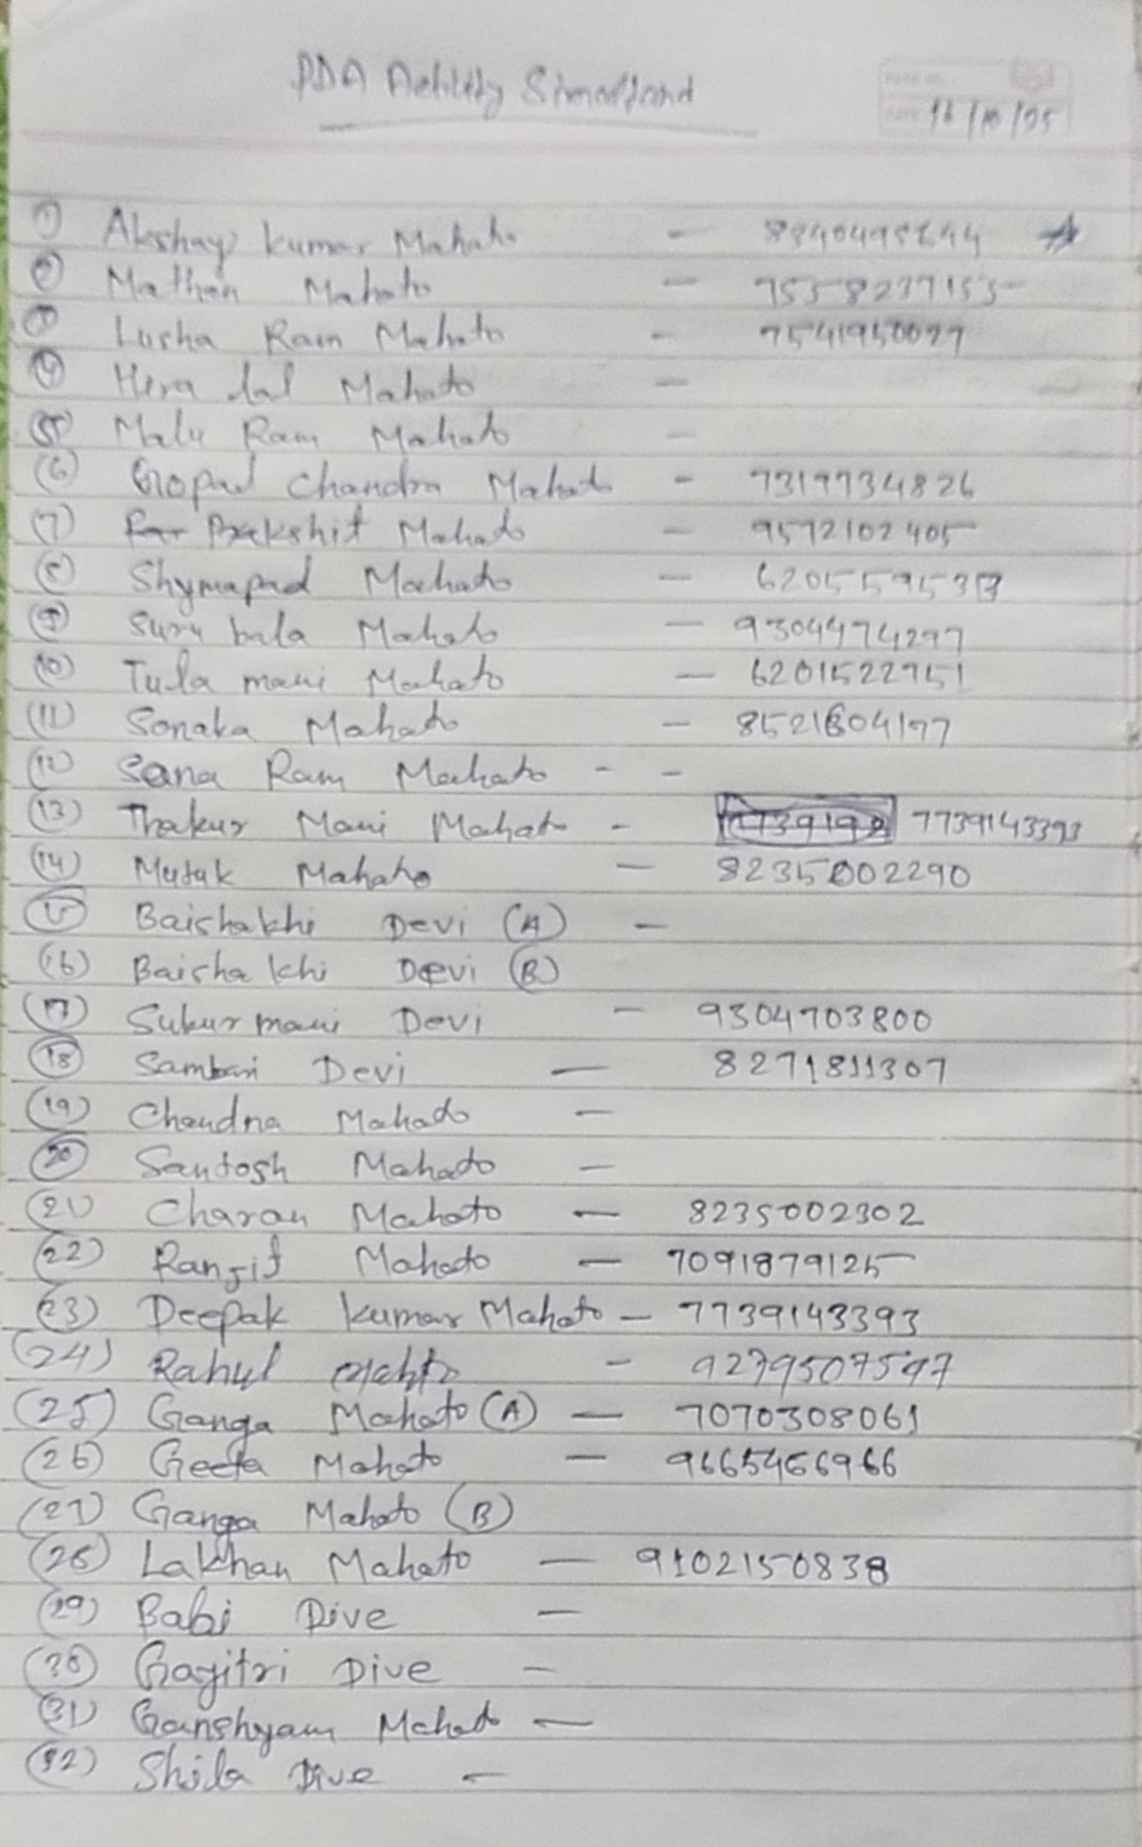 PDA
16/10/25
① Akshay kumar Mahato -
② Mathan Mahato - 7558277155
③ Lusha Ram Mahato - 7541950097
④ Hira lal Mahato -
⑤ Malu Ram Mahato -
(6) Gopal Chandra Mahato - 7319734826
(7) Prakshit Mahato - 9572102405
(8) Shymapad Mahato -
(9) Suru bala Mahato - 9304474297
(10) Tula mani Mahato - 6201522951
(11) Sonaka Mahato - 8521604197
(12) Sana Ram Mahato - -
(13) Thakur Mani Mahato - 7739143393
(14) Mutuk Mahato - 8235002290
(15) Baishakhi Devi (A) -
(16) Baishakhi Devi (B)
(17) Sukurmani Devi - 9304703800
(18) Sambari Devi - 8271811307
(19) Chandna Mahato -
(20) Santosh Mahato -
(21) Charan Mahato - 8235002302
(22) Ranjit Mahato - 7091879125
(23) Deepak kumar Mahato - 7739143393
(24) Rahul Mahto - 9279507597
(25) Ganga Mahato (A) - 7070308061
(26) Geeta Mahato - 9665466966
(27) Ganga Mahato (B)
(28) Lakhan Mahato - 9102150838
(29) Babi Dive -
(30) Gayitri Dive -
(31) Ganshyam Mahato -
(32) Shila Dive -